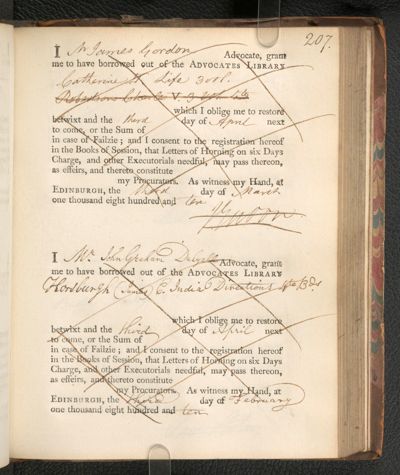 207.
I Mr James Gordon Advocate, grant
me to have borrowed out of the ADVOCATES LIBRARY
Catherine Life 3 vol.
Robertsons Charles V 3 4to
which I oblige me to restore
betwixt and the third day of April next
to come, or the Sum of
in case of Failzie ; and I consent to the registration hereof
in the Books of Session, that Letters of Horning on six Days
Charge, and other Executorials needful, may pass thereon,
as effeirs, and thereto constitute
my Procurators. As witness my Hand, at
EDINBURGH, the third day of March
one thousand eight hundred and ten
I Mr. John Graham Dalyell Advocate, grant
me to have borrowed out of the ADVOCATES LIBRARY
Horsburgh (James) E. India Directions 4to Bds
which I oblige me to restore
betwixt and the third day of April next
to come, or the Sum of
in case of Failzie ; and I consent to the registration hereof
in the Books of Session, that Letters of Horning on six Days
Charge, and other Executorials needful, may pass thereon,
as effeirs, and thereto constitute
my Procurators. As witness my Hand, at
EDINBURGH, the third day of February
one thousand eight hundred and ten